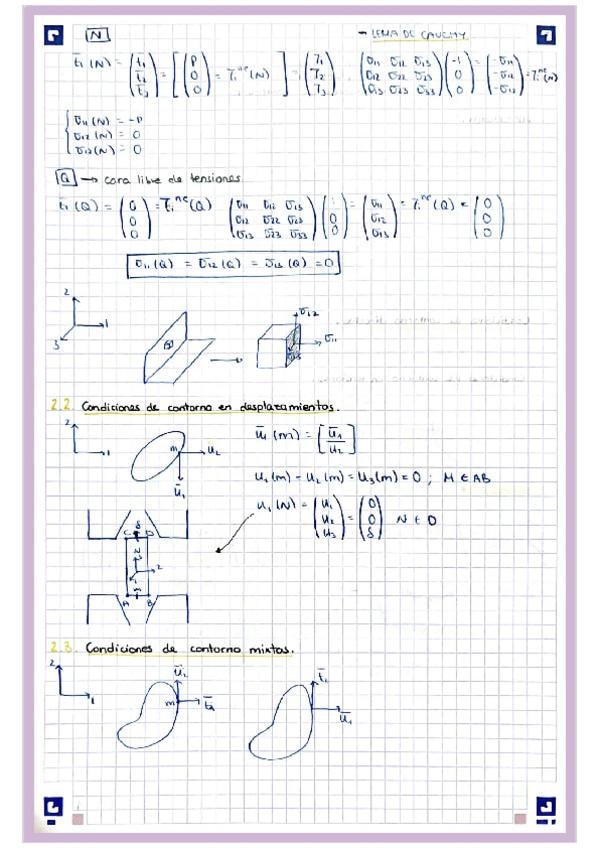 N → LEMA DE CAUCHY
t̄₁(N) = (t̄₁ t̄₂ t̄₃) = [(P 0 0) = T₁ⁿᵉ(N)] = (T₁ T₂ T₃) (σ₁₁ σ₁₂ σ₁₃ σ₁₂ σ₂₂ σ₂₃ σ₁₃ σ₂₃ σ₃₃)(-1 0 0) = (-σ₁₁ -σ₁₂ -σ₁₃) = Tᵢⁿᵉ(N)
σ₁₁(N) = -P
σ₁₂(N) = 0
σ₁₃(N) = 0
Q → cara libre de tensiones
t̄₁(Q) = (0 0 0) = Tᵢⁿᵉ(Q) (σ₁₁ σ₁₂ σ₁₃ σ₁₂ σ₂₂ σ₂₃ σ₁₃ σ₂₃ σ₃₃)(1 0 0) = (σ₁₁ σ₁₂ σ₁₃) = Tᵢⁿᵉ(Q) = (0 0 0)
σ₁₁(Q) = σ₁₂(Q) = σ₁₃(Q) = 0
2
1
3
Q
σ₁₂
σ₁₁
2.2. Condiciones de contorno en desplazamientos.
2
1
m
u₂
ū₁
ū₁(m) = [ū₁ ū₂]
u₁(m) = u₂(m) = u₃(m) = 0 ; M ∈ AB
u₁(N) = (u₁ u₂ u₃) = (0 0 δ) N ∈ D
δ
C D
N
2
A B
2.3. Condiciones de contorno mixtas.
2
1
ū₂
m
t̄₁
t̄₂
ū₁